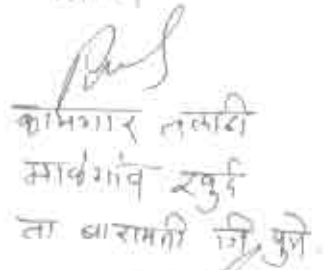 कामगार तलाठी
माळेगांव खुर्द
ता बारामती जि पुणे.